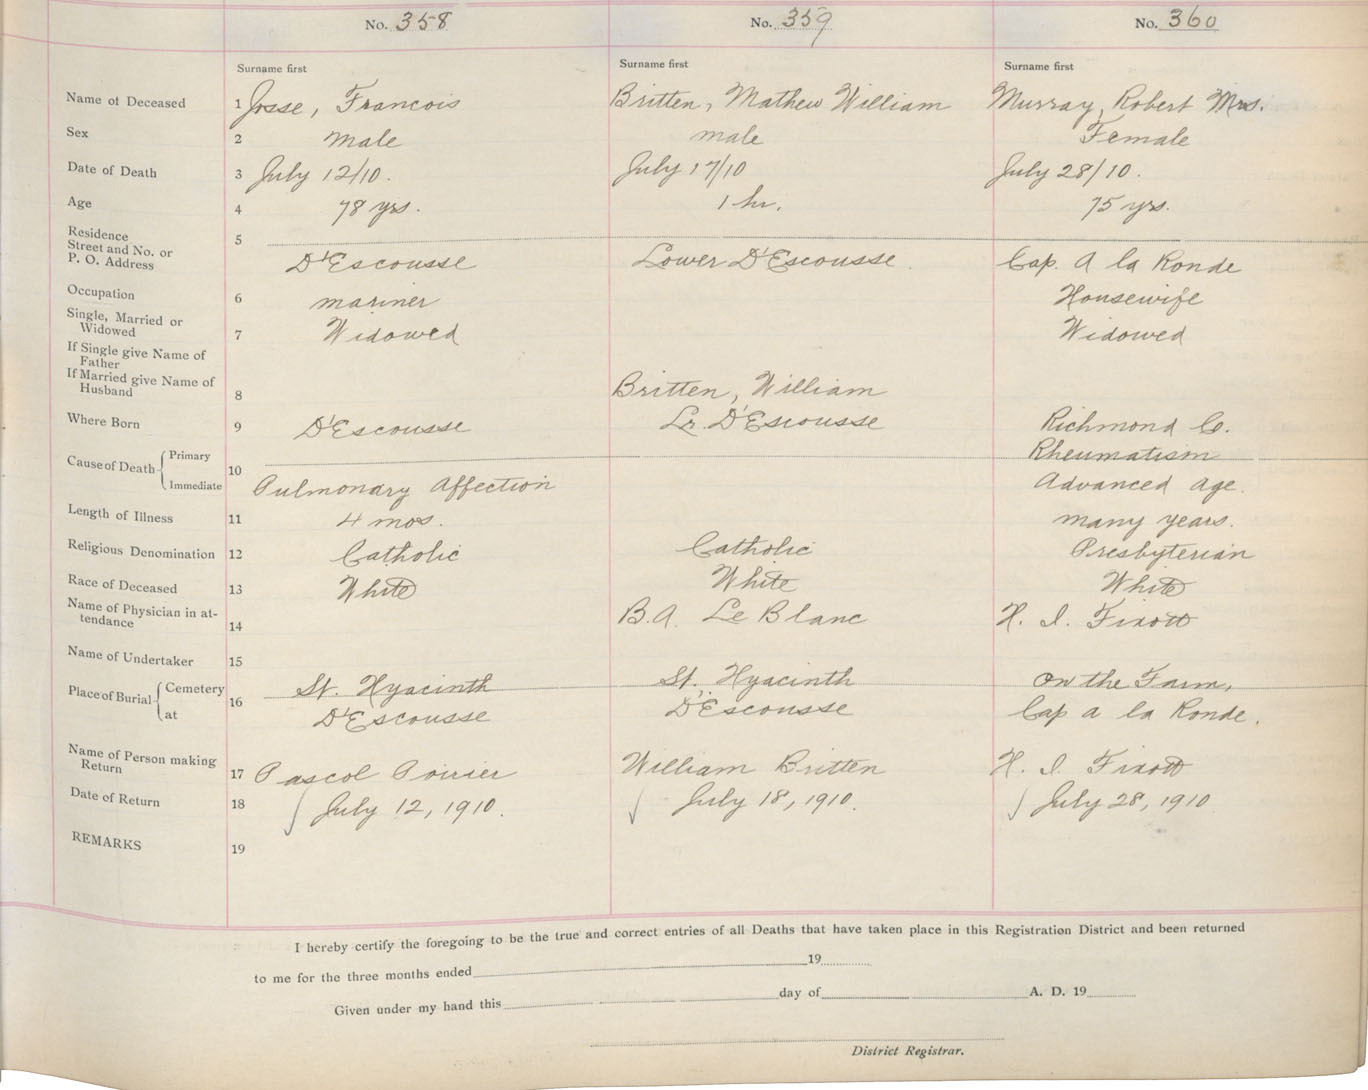 No. 358 No. 359 No. 360
Surname first Surname first Surname first
Name of Deceased 1 Josse, Francois Britten, Mathew William Murray, Robert Mrs.
Sex 2 Male male Female
Date of Death 3 July 12/10. July 17/10 July 28/10.
Age 4 78 yrs. 1 hr. 75 yrs.
Residence
Street and No. or 5
P. O. Address D'Escousse Lower D'Escousse Cap. A la Ronde
Occupation 6 mariner Housewife
Single, Married or
Widowed 7 Widowed Widowed
If Single give Name of
Father
If Married give Name of
Husband 8 Britten, William
Where Born 9 D'Escousse Lr. D'Escousse Richmond C.
Cause of Death Primary Rheumatism
10 Immediate Pulmonary Affection Advanced Age.
Length of Illness 11 4 mos. many years.
Religious Denomination 12 Catholic Catholic Presbyterian
Race of Deceased 13 White White White
Name of Physician in at-
tendance 14 B.A. Le Blanc H. I. Fixott
Name of Undertaker 15
Place of Burial Cemetery 16 St. Hyacinth St. Hyacinth On the Farm,
at D'Escousse D'Escousse Cap a la Ronde.
Name of Person making
Return 17 Pascol Poirier William Britten H. I. Fixott
Date of Return 18 July 12, 1910. July 18, 1910. July 28, 1910
REMARKS 19
I hereby certify the foregoing to be the true and correct entries of all Deaths that have taken place in this Registration District and been returned
to me for the three months ended 19
Given under my hand this day of A. D. 19
District Registrar.